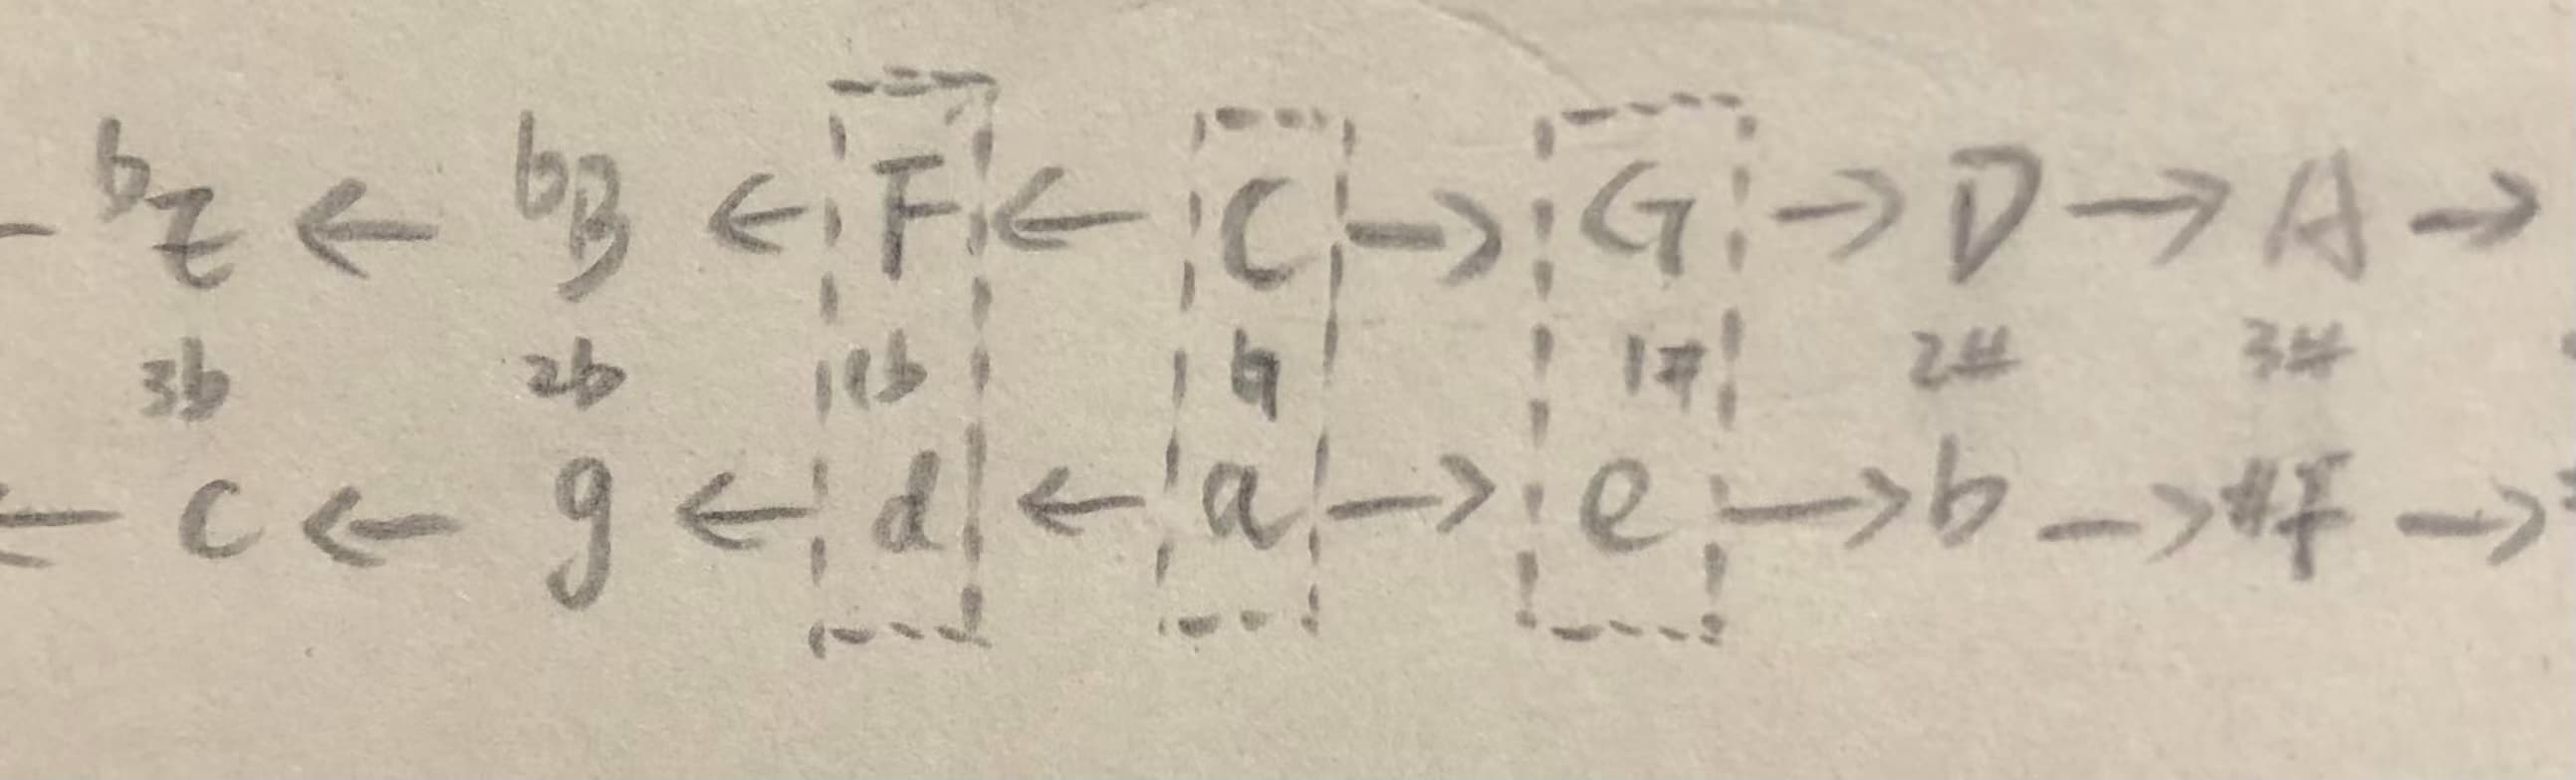 ← bE ← bB ← F ← C → G → D → A →
3b 2b 1b ♮ 1# 2# 3#
← c ← g ← d ← a → e → b → #f →